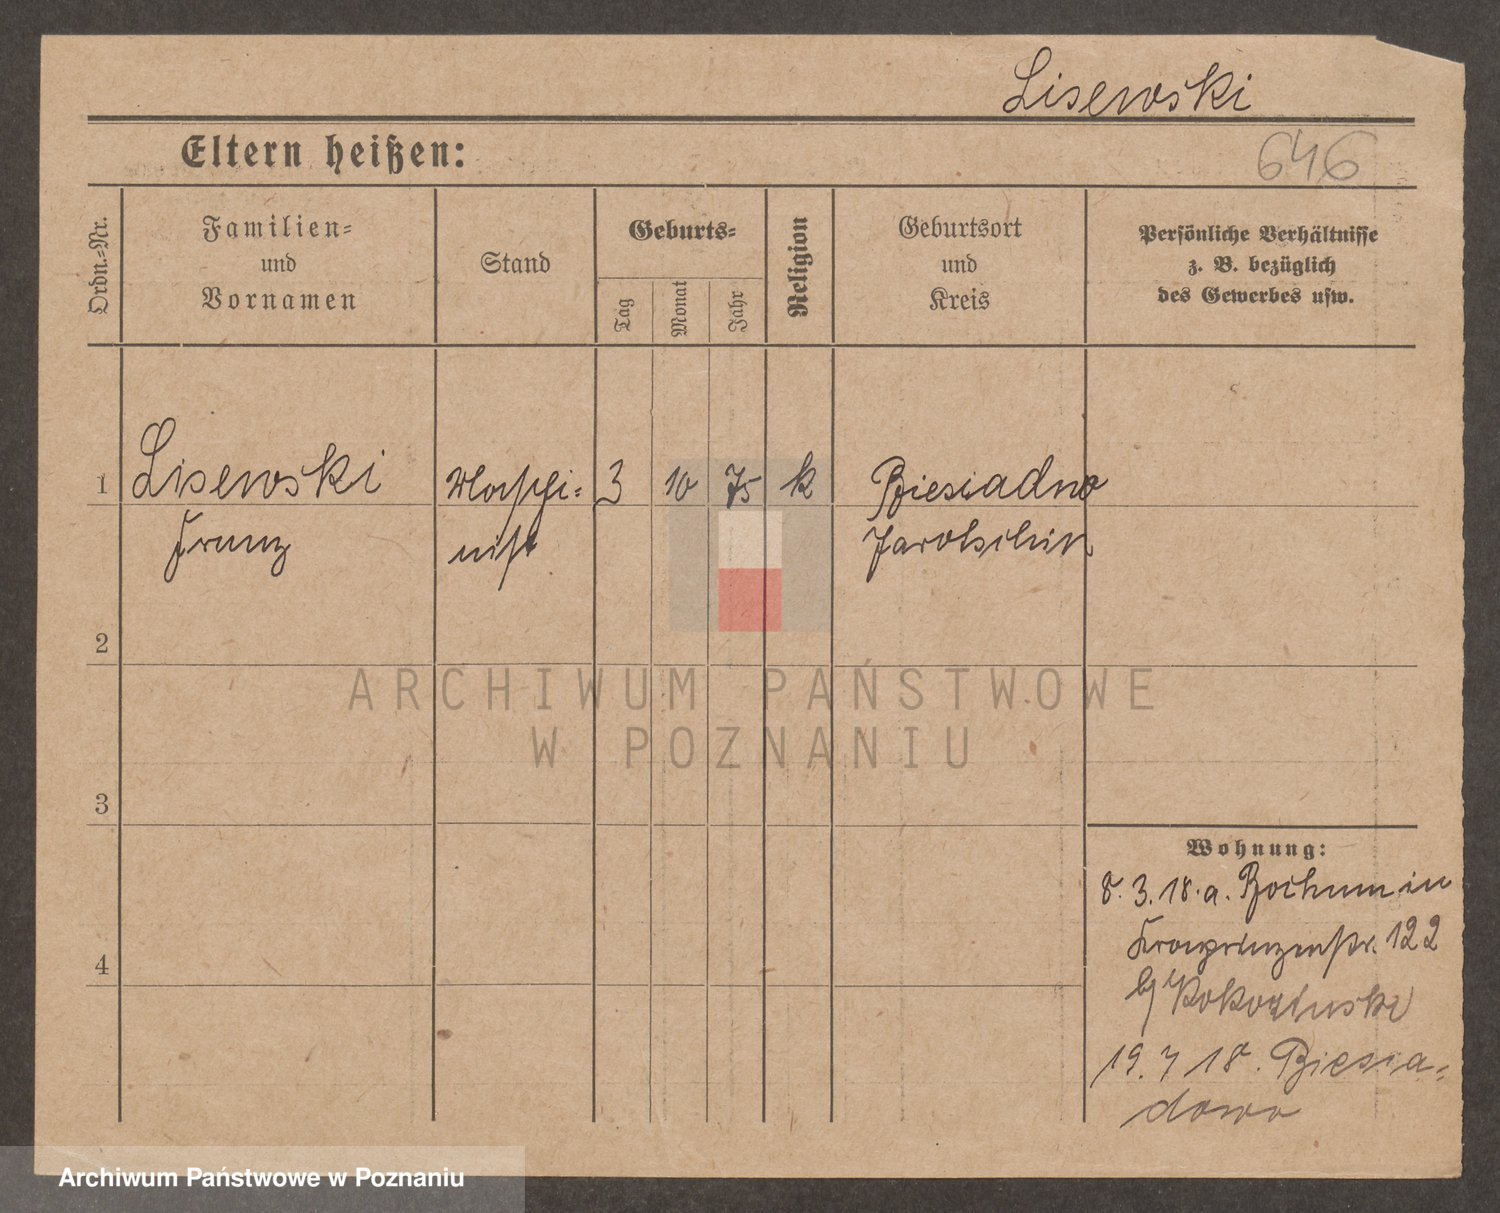 Lisewski
646
Eltern heißen:
Ordn.-Nr.
Familien-
und
Vornamen
Stand
Geburts-
Tag
Monat
Jahr
Religion
Geburtsort
und
Kreis
Persönliche Verhältnisse
z. B. bezüglich
des Gewerbes usw.
1 Lisewski Maschi- 3 10 75 k Biesiadno
Franz nist Jarotschin
2
3
4
Wohnung:
8. 3. 18. a. Bochum in
Kronprinzenstr. 122
19. 7 18. Biesia-
dowo
ARCHIWUM PAŃSTWOWE
W POZNANIU
Archiwum Państwowe w Poznaniu